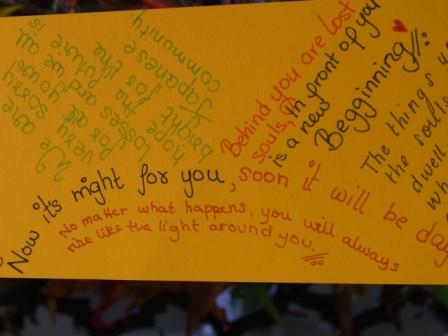 We are
very sorry
for all your
losses and we all
hope the future is
bright for the
Japanese
community
Behind you are lost
souls, in front of you
is a new
Begginning
The things
the souls
dwell
Now it's night for you, soon it will be day
No matter what happens, you will always
rise like the light around you.